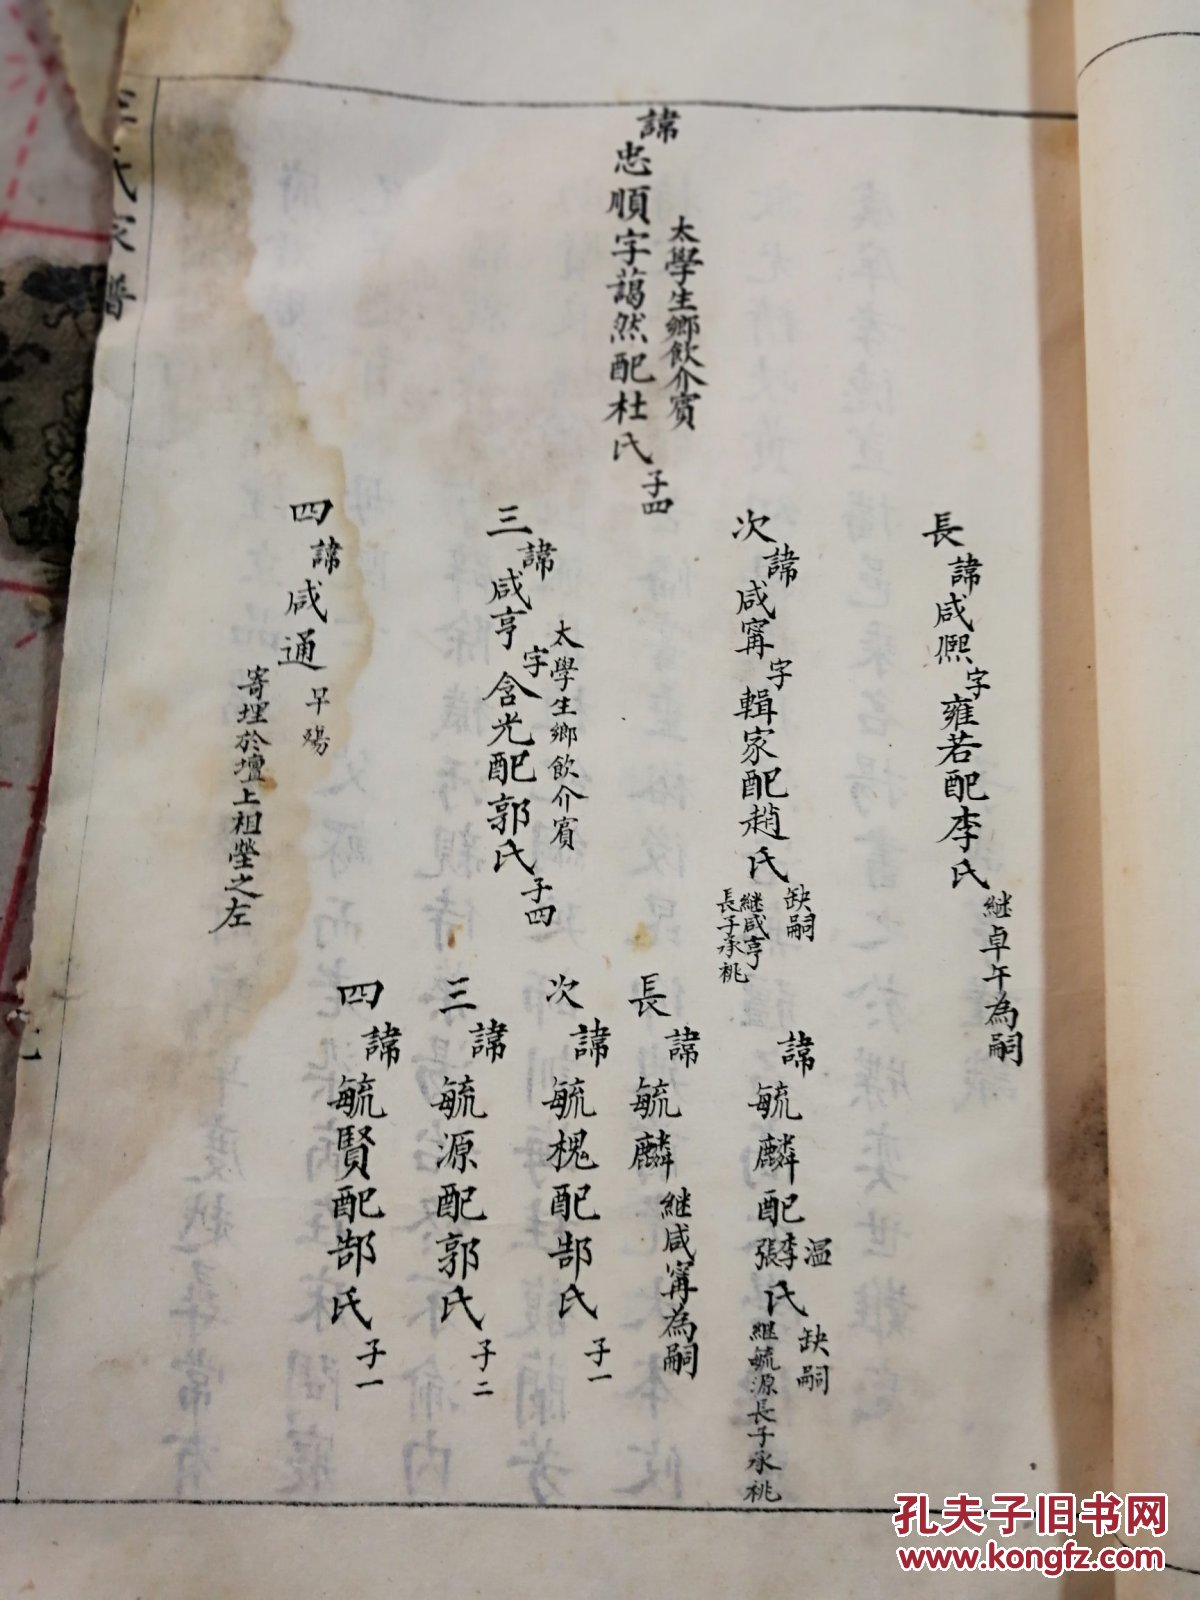 諱忠順字藹然配杜氏子四
太學生鄉飲介賓
長諱咸熈字雍若配李氏
継卓午為嗣
次諱咸甯字輯家配趙氏
缺嗣
継咸亨
長子承祧
三諱咸亨字含光配郭氏子四
太學生鄉飲介賓
四諱咸通早殤
寄埋於壇上祖塋之左
諱毓麟配溫李張氏
缺嗣
継毓源長子承祧
長諱毓麟継咸甯為嗣
次諱毓槐配郜氏子一
三諱毓源配郭氏子二
四諱毓賢配郜氏子一
氏家譜
孔夫子旧书网
www.kongfz.com